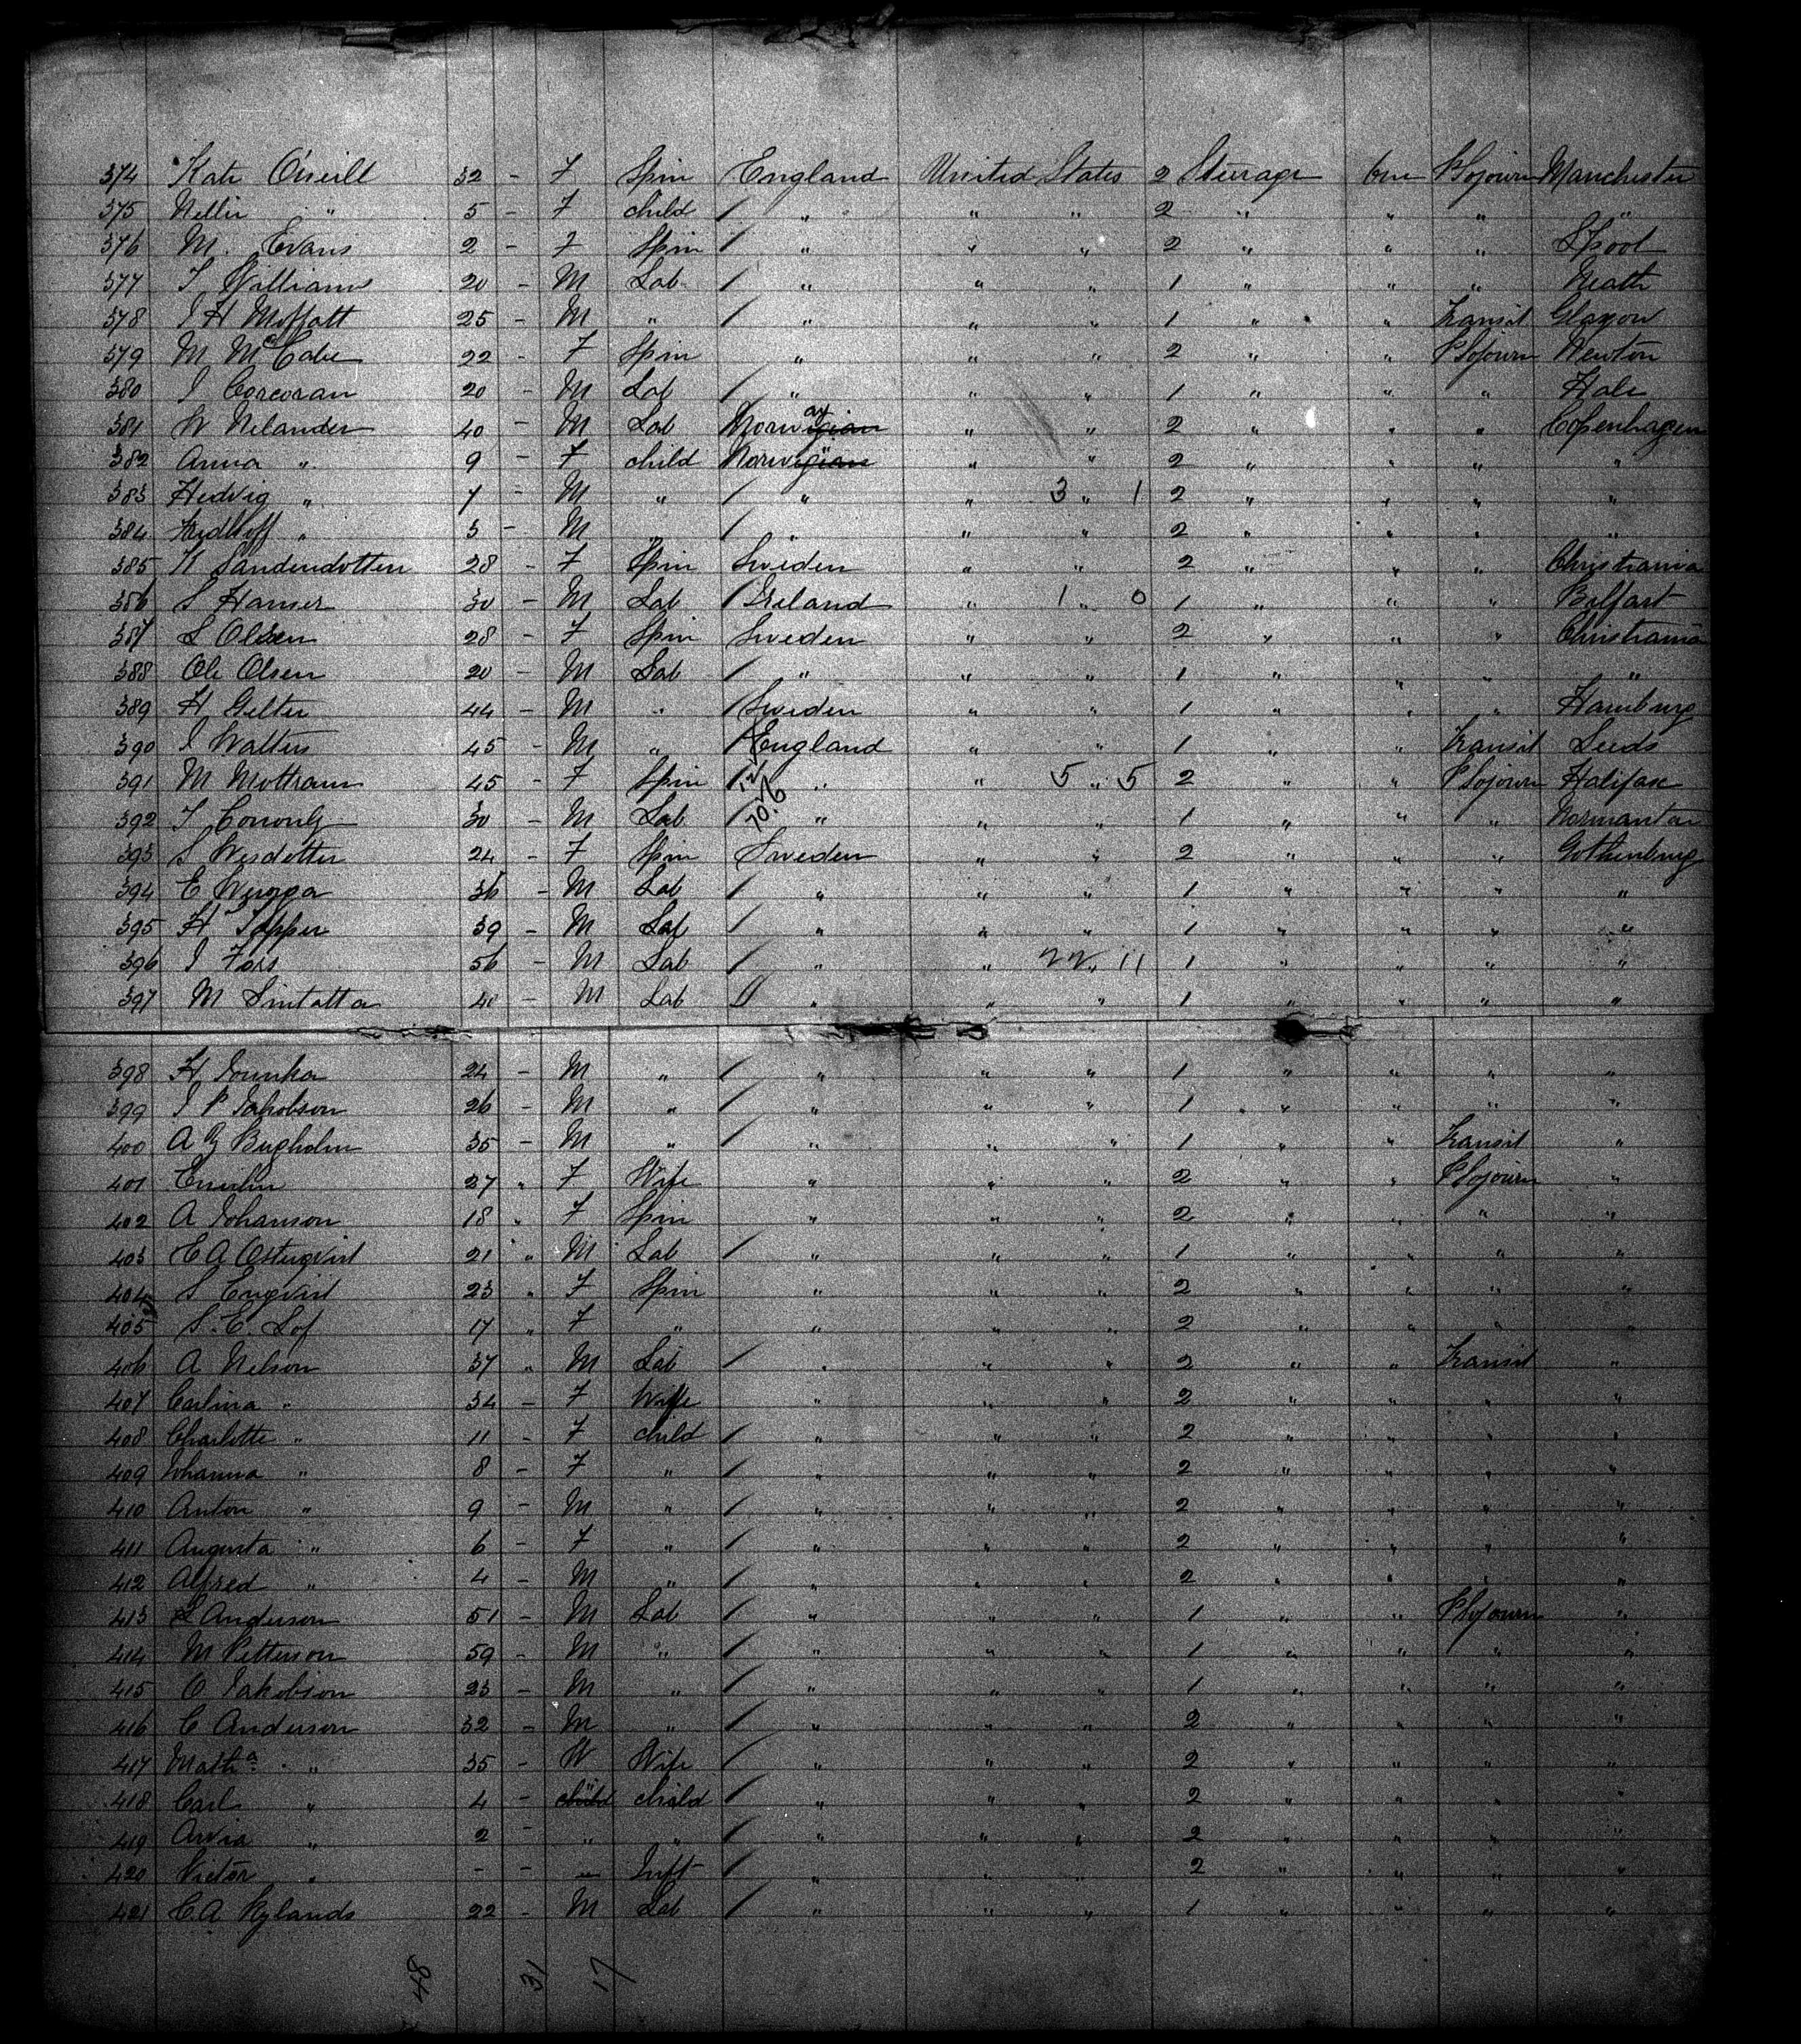 374 Kate O'neill 32 - F Spin England United States 2 Steerage 6m P Sojourn Manchester
375 Nellie " 5 - F child / " " " 2 " " " "
376 M. Evans 2 - F Spin / " " " 2 " " " L'pool
377 T Williams 20 - M Lab / " " " 1 " " " Neath
378 J H Moffatt 25 - M " / " " " 1 " " Transit Glasgow
379 M McCabe 22 - F Spin " " " 2 " " P Sojourn Newton
380 J Corcoran 20 - M Lab / " " " 1 " " " Hale
381 W Nelander 40 - M Lab Norwegian ay " " 2 " " " Copenhagen
382 Anna " 9 - F child Norwegian " " 2 " " " "
383 Hedvig " 7 - M " / " " 3 " 1 2 " " " "
384 Fridhoff " 3 - M " / " " " 2 " " " "
385 K Sandendotten 28 - F Spin Sweden " " 2 " " " Christiania
386 S Hamer 30 - M Lab / Ireland " 1 " 0 1 " " " Belfast
387 L Olsen 28 - F Spin Sweden " " 2 " " " Christiania
388 Ole Olsen 20 - M Lab / " " " 1 " " " "
389 H Gelter 44 - M " / Sweden " " 1 " " " Hamburg
390 J Walters 45 - M " / England " " 1 " " Transit Leeds
391 M Mottram 45 - F Spin " " 5 " 5 2 " " P Sojourn Halifax
392 T Conouly 30 - M Lab / " " " 1 " " " Normanton
393 S Wesdotter 24 - F Spin Sweden " " 2 " " " Gothenburg
394 E 36 - M Lab / " " " 1 " " " "
395 H Topper 39 - M Lab / " " " 1 " " " "
396 J Fors 56 - M Lab / " " 22 " 11 1 " " " "
397 M 40 - M Lab / " " " 1 " " " "
398 H 24 - M " / " " " 1 " " " "
399 J P Jakobson 26 - M " / " " " 1 " " " "
400 A Bugholm 35 - M " / " " " 1 " " Transit "
401 27 " F Wife " " " 2 " " P Sojourn "
402 A Johanson 18 " F Spin " " " 2 " " " "
403 E A Osterqvist 21 " M Lab / " " " 1 " " " "
404 S Enqvist 23 " F Spin " " " 2 " " " "
405 S. E. Lof 17 " F " " " " 2 " " " "
406 A Nelson 37 " M Lab / " " " 2 " " Transit "
407 Carlina " 34 - F Wife " " " 2 " " " "
408 Charlotte " 11 - F child / " " " 2 " " " "
409 Johanna " 8 - F " / " " " 2 " " " "
410 Anton " 9 - M " / " " " 2 " " " "
411 Augusta " 6 - F " / " " " 2 " " " "
412 Alfred " 4 - M " / " " " 2 " " " "
413 L Anderson 51 - M Lab / " " " 1 " " P Sojourn "
414 M Petterson 59 - M " / " " " 1 " " " "
415 O Jakobson 23 - M " / " " " 1 " " " "
416 C Anderson 32 - M " / " " " 2 " " " "
417 Matha " 35 - W Wife / " " " 2 " " " "
418 Carl " 4 - child child / " " " 2 " " " "
419 Arvia " 2 - " " / " " " 2 " " " "
420 Victor " - - " Inft / " " " 2 " " " "
421 C. A Rylands 22 - M Lab / " " " 1 " " " "
48 31 17